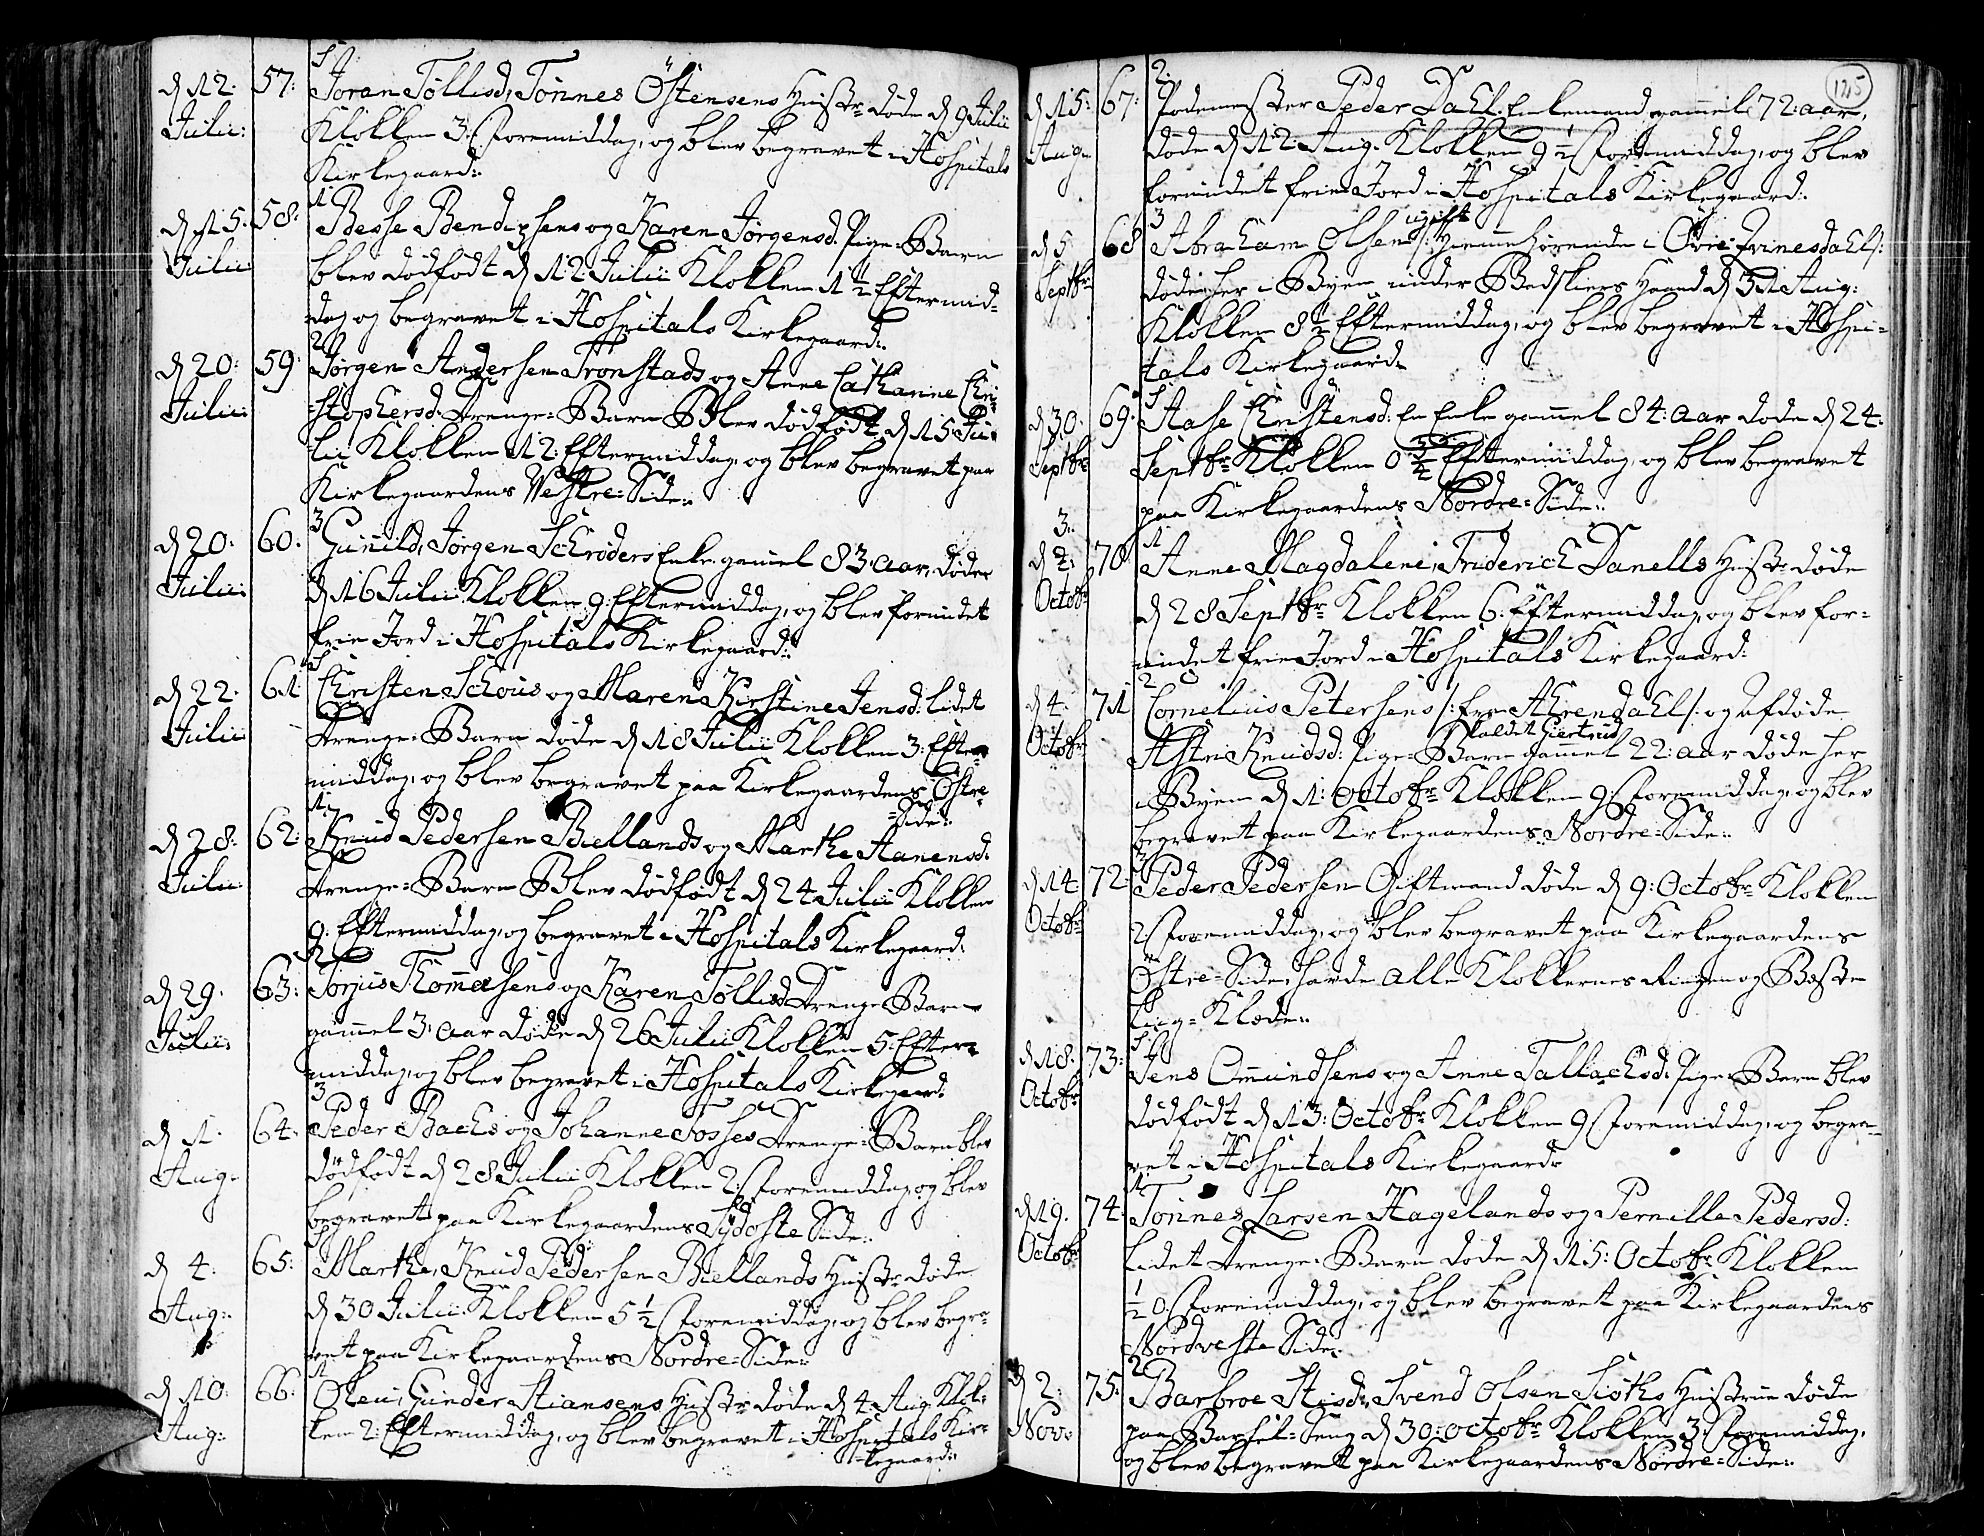 S
d 12: 57: Joran Töllisd, Tönnes Östensens Hustr: døde d 9 Julii
Julii: Klokken 3: Formiddag, og blev begravet i Hospitals
Kirkegaard:
1
d 15: 58: Besse Bendixsens og Karen Jörgensd. Pige-Barn
Julii: blev dødfødt d 12 Julii Klokken 1 1/2 Eftermid-
dag og begravet i Hospitals Kirkegaard:
2
d 20: 59: Jörgen Andersen Tronstads og Anne Cathanne Chri-
Julii: stophersd. Drenge-Barn Blev dødfødt d 15 Ju-
lii Klokken 12: Eftermiddag, og blev begravet paa
Kirkegaardens Westre-Side:
3
d 20: 60: Gunild, Jörgen Schröders Enke gamel 83 aar, døde
Julii: d 16 Julii Klokken 9: Eftermiddag, og blev forundet
frie Jord i Hospitals Kirkegaard:
S
d 22: 61 Christen Schous og Maren Kirstine Jensd: lidet
Julii: Drenge-Barn døde d 18 Julii Klokken 3: Efter-
middag, og blev begravet paa Kirkegaardens Östre-
Side:
1
d 28: 62: Knud Pedersen Biellands og Marthe Aanensd.
Julii: Drenge-Barn Blev dødfødt d 24 Julii Klokken
9: Eftermiddag, og begravet i Hospitals Kirkegaard:
2
d 29: 63: Torjus Thommesens og Karen Töllisd Drenge-Barn
Julii: gammel 3: aar døde d 26 Julii Klokken 5: Efter-
middag, og blev begravet i Hospitals Kirkegaard:
3
d 1: 64: Peder Bachs og Johanne Tosses Drenge-Barn blev
Aug: dødfødt d 28 Julii Klokken 2: Formiddag, og blev
begravet paa Kirkegaardens Sydoste Side:
d 4: 65: Marthe, Knud Pedersen Biellands Hustr: døde
Aug: d 30 Julii Klokken 5 1/2 Formiddag, og blev begra-
vet paa Kirkegaardens Nordre-Side:
1
d 10: 66: Oleu, Gunder Stiansens Hustr: døde d 4 Aug: Klok-
Aug: ken 2: Eftermiddag, og blev begravet i Hospitals Kir-
kegaard:
125
2
d 15: 67: Peder Dahl: Enkemand gammel 72: aar,
Aug: døde d 12 Aug: Klokken 9 1/2 Formiddag, og blev
forundet frie Jord i Hospitals Kirkegaard:
3 ugift
d 5 68 Abraham Olsen /: Hiemmehörende i Øvre Qvinesdahl :/
Septbr: døde her i Byen under Bedskiers Haand d 31 Aug:
Klokken 8 1/2 Eftermiddag, og blev begravet i Hospi-
tals Kirkegaard:
S
d 30: 69: Aase Christensd: En Enke gammel 84: aar døde d 24:
Septbr: Septbr: Klokken 0 1/2 Eftermiddag, og blev begravet
paa Kirkegaardens Nordre-Side:
3: 1
d 2: 70 Anne Magdalene, Friderich Danells Hustr: døde
Octobr: d 28 Septbr: Klokken 6: Eftermiddag, og blev for-
undet frie Jord i Hospitals Kirkegaard:
2
d 4: 71 Cornelius Petersens /: fra Ahrendahl :/ og Afdøde
kaldet Giertrud
Octobr: Astri Knudsd: Pige-Barn gammel 22: aar døde her
i Byen d 1: Octobr: Klokken 9: Formiddag, og blev
begravet paa Kirkegaardens Nordre-Side:
3
d 14 72: Peder Pedersen Giftmand døde d 9: Octobr: Klokken
Octobr: 2 Formiddag, og blev begravet paa Kirkegaardens
Östre-Side, havde alle Klokkernes Ringen og Beste
Liig-Klæde:
S
d 18: 73: Jens Omundsens og Anne Tallachsd: Pige-Barn blev
Octobr: dødfødt d 13: Octobr: Klokken 9 Formiddag, og begra-
vet i Hospitals Kirkegaard:
1
d 19: 74: Tönnes Larsen Hagelands og Pernille Pedersd:
Octobr: lidet Drenge-Barn døde d 15: Octobr: Klokken
1/2 0 Formiddag, og blev begravet paa Kirkegaardens
Nordveste Side:
2
d 2: 75: Barbroe Aisd, Svend Olsen Siöths Hustrue døde
Nov: paa Barsel-Seng d 30: Octobr: Klokken 3: Formiddag,
og blev begravet paa Kirkegaardens Nordre-Side: